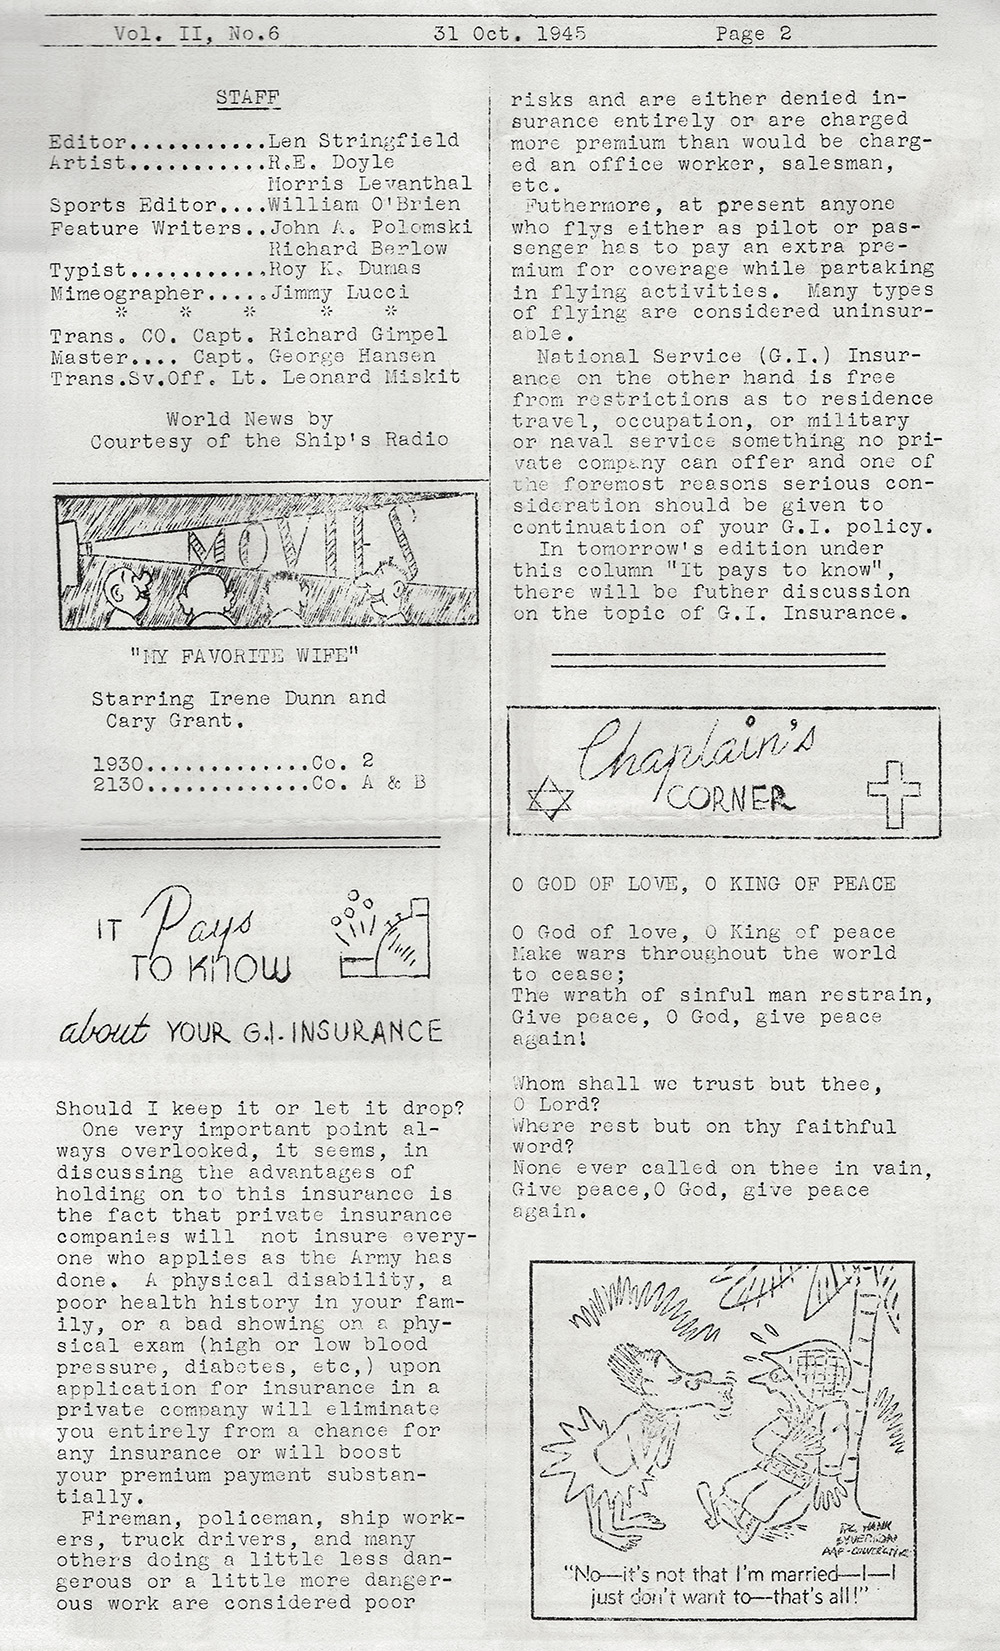 Vol. II, No.6 31 Oct. 1945 Page 2
STAFF
Editor...........Len Stringfield
Artist...........R.E. Doyle
Morris Levanthal
Sports Editor....William O'Brien
Feature Writers..John A. Polomski
Richard Berlow
Typist...........Roy K. Dumas
Mimeographer.....Jimmy Lucci
* * * * *
Trans. CO. Capt. Richard Gimpel
Master.... Capt. George Hansen
Trans.Sv.Off. Lt. Leonard Miskit
World News by
Courtesy of the Ship's Radio
MOVIES
"MY FAVORITE WIFE"
Starring Irene Dunn and
Cary Grant.
1930.............Co. 2
2130.............Co. A & B
IT Pays
TO KNOW
about YOUR G.I. INSURANCE
Should I keep it or let it drop?
One very important point al-
ways overlooked, it seems, in
discussing the advantages of
holding on to this insurance is
the fact that private insurance
companies will not insure every-
one who applies as the Army has
done. A physical disability, a
poor health history in your fam-
ily, or a bad showing on a phy-
sical exam (high or low blood
pressure, diabetes, etc,) upon
application for insurance in a
private company will eliminate
you entirely from a chance for
any insurance or will boost
your premium payment substan-
tially.
Fireman, policeman, ship work-
ers, truck drivers, and many
others doing a little less dan-
gerous or a little more danger-
ous work are considered poor
risks and are either denied in-
surance entirely or are charged
more premium than would be charg-
ed an office worker, salesman,
etc.
Futhermore, at present anyone
who flys either as pilot or pas-
senger has to pay an extra pre-
mium for coverage while partaking
in flying activities. Many types
of flying are considered uninsur-
able.
National Service (G.I.) Insur-
ance on the other hand is free
from restrictions as to residence
travel, occupation, or military
or naval service something no pri-
vate company can offer and one of
the foremost reasons serious con-
sideration should be given to
continuation of your G.I. policy.
In tomorrow's edition under
this column "It pays to know",
there will be futher discussion
on the topic of G.I. Insurance.
Chaplain's
CORNER
O GOD OF LOVE, O KING OF PEACE
O God of love, O King of peace
Make wars throughout the world
to cease;
The wrath of sinful man restrain,
Give peace, O God, give peace
again!
Whom shall we trust but thee,
O Lord?
Where rest but on thy faithful
word?
None ever called on thee in vain,
Give peace,O God, give peace
again.
HANK
AAF-
"No—it's not that I'm married—I—I
just don't want to—that's all!"